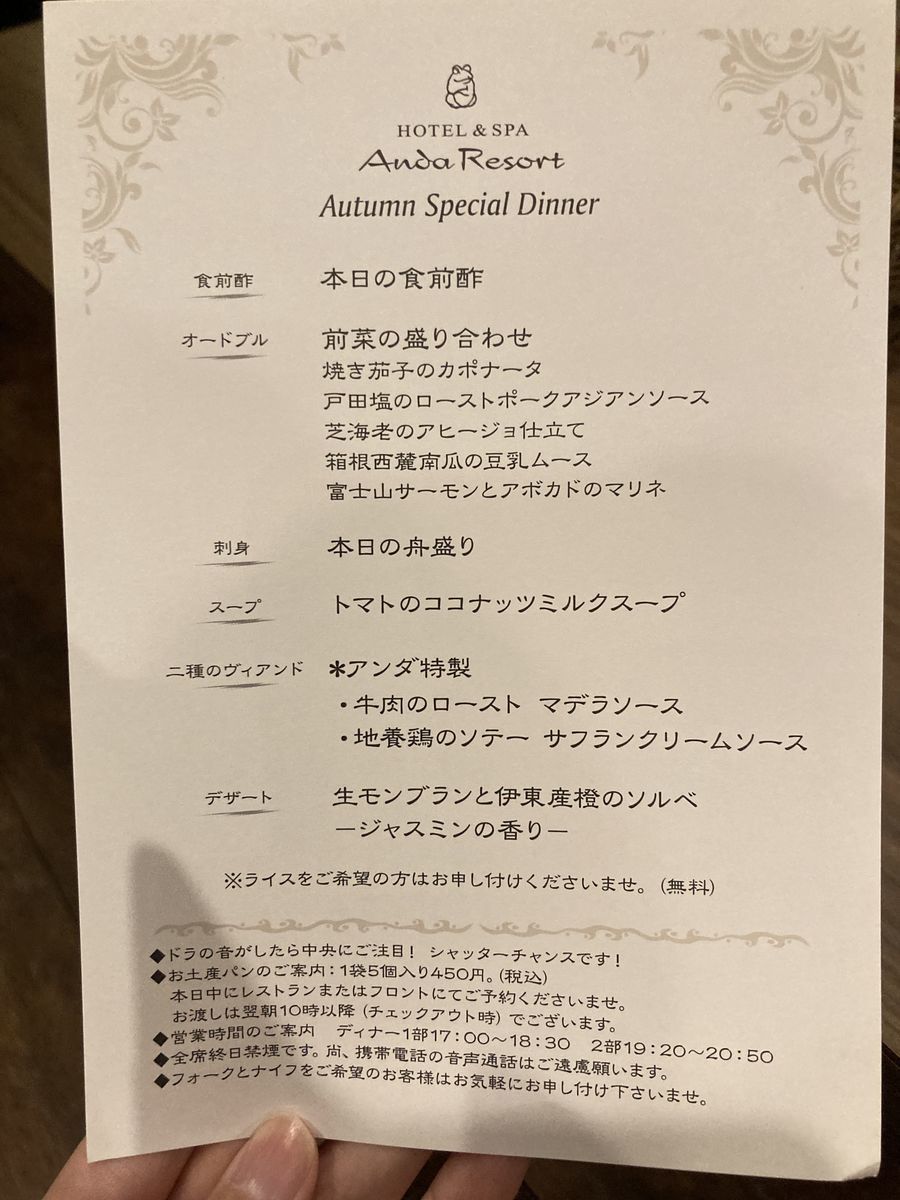 HOTEL & SPA
Anda Resort
Autumn Special Dinner
食前酢 本日の食前酢
オードブル 前菜の盛り合わせ
焼き茄子のカポナータ
戸田塩のローストポークアジアンソース
芝海老のアヒージョ仕立て
箱根西麓南瓜の豆乳ムース
富士山サーモンとアボカドのマリネ
刺身 本日の舟盛り
スープ トマトのココナッツミルクスープ
二種のヴィアンド *アンダ特製
・牛肉のロースト マデラソース
・地養鶏のソテー サフランクリームソース
デザート 生モンブランと伊東産橙のソルベ
―ジャスミンの香り―
※ライスをご希望の方はお申し付けくださいませ。(無料)
◆ドラの音がしたら中央にご注目! シャッターチャンスです!
◆お土産パンのご案内:1袋5個入り450円。(税込)
本日中にレストランまたはフロントにてご予約くださいませ。
お渡しは翌朝10時以降(チェックアウト時)でございます。
◆営業時間のご案内 ディナー1部17:00〜18:30 2部19:20〜20:50
◆全席終日禁煙です。尚、携帯電話の音声通話はご遠慮願います。
◆フォークとナイフをご希望のお客様はお気軽にお申し付け下さいませ。